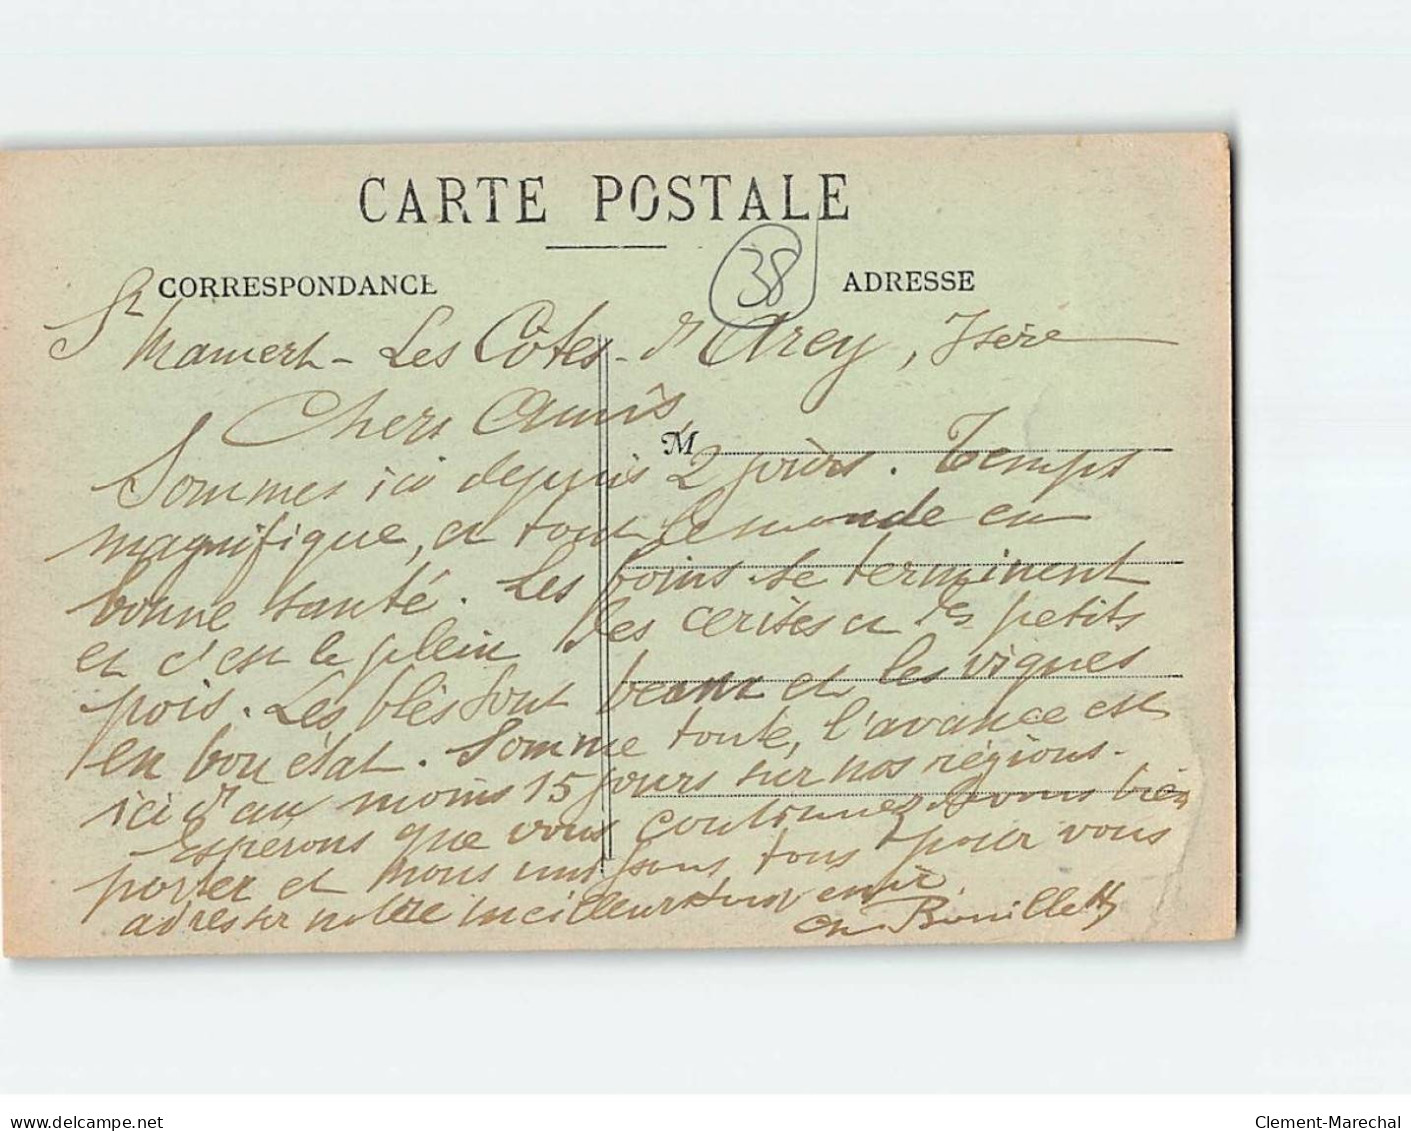 CARTE POSTALE
38
CORRESPONDANCE ADRESSE
St Mamert - Les Côtes - d'Arey, Isère
Chers Amis,
M
Sommes ici depuis 2 jours. Temps
magnifique, et tout le monde en
bonne santé. Les foins se terminent
et c'est le plein des cerises et des petits
pois. Les blés sont beaux et les vignes
en bon état. Somme toute, l'avance est
ici d'au moins 15 jours sur nos régions.
Espérons que vous continuez à vous bien
porter et nous unissons tous pour vous
adresser notre meilleur souvenir.
Ch. Bouillett
delcampe.net
Clement-Marechal